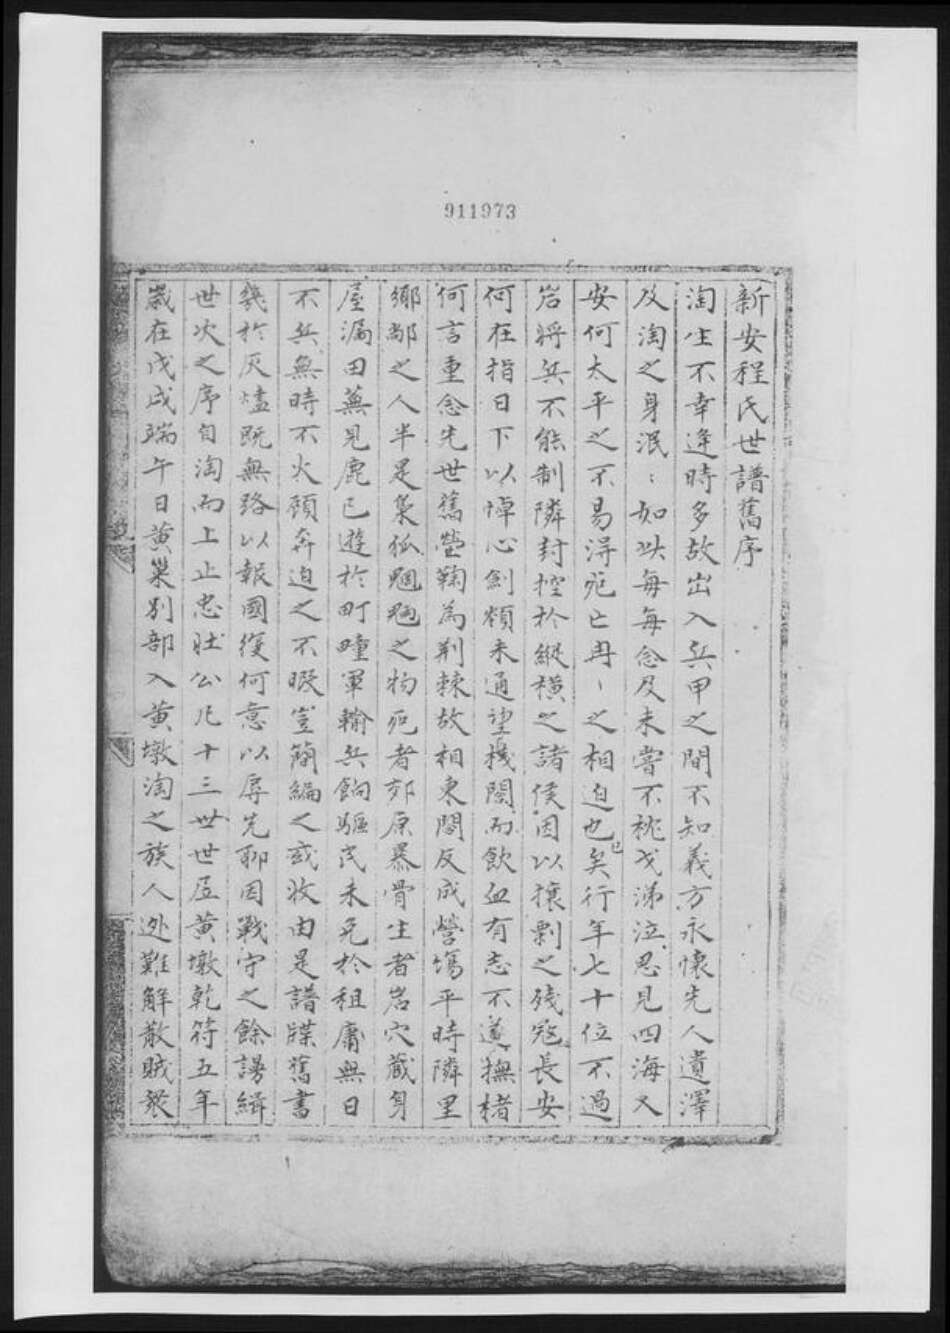 911973
新安程氏世譜舊序
淘生不幸逢時多故出入兵甲之間不知義方永懷先人遺澤
及淘之身泯：如此每每念及未嘗不枕戈涕泣思見四海乂
安何太平之不易淂死亡冉ヽ之相迫也已矣行年七十位不過
岩將兵不能制隣封控於縱橫之諸侯因以攘剽之殘寇長安
何在指日下以悼心劍頻未通望機閣而飲血有志不遂撫楮
何言重念先世舊塋鞠為荆棘故相東閣反成營塲平時隣里
鄉鄰之人半是梟狐魍魎之物死者郊原暴骨生者岩穴藏身
屋漏田蕪見鹿已遊於町疃軍輸兵餉驅民未免於租庸無日
不兵無時不火顧奔迫之不暇豈簡編之或收由是譜牒舊書
幾於灰燼既無路以報國復何意以辱先聊因戰守之餘謾緝
世次之序自淘而上止忠壯公凡十三世世居黃墩乾符五年
歲在戊戌端午日黃巢别部入黃墩淘之族人迯難解散賊衆